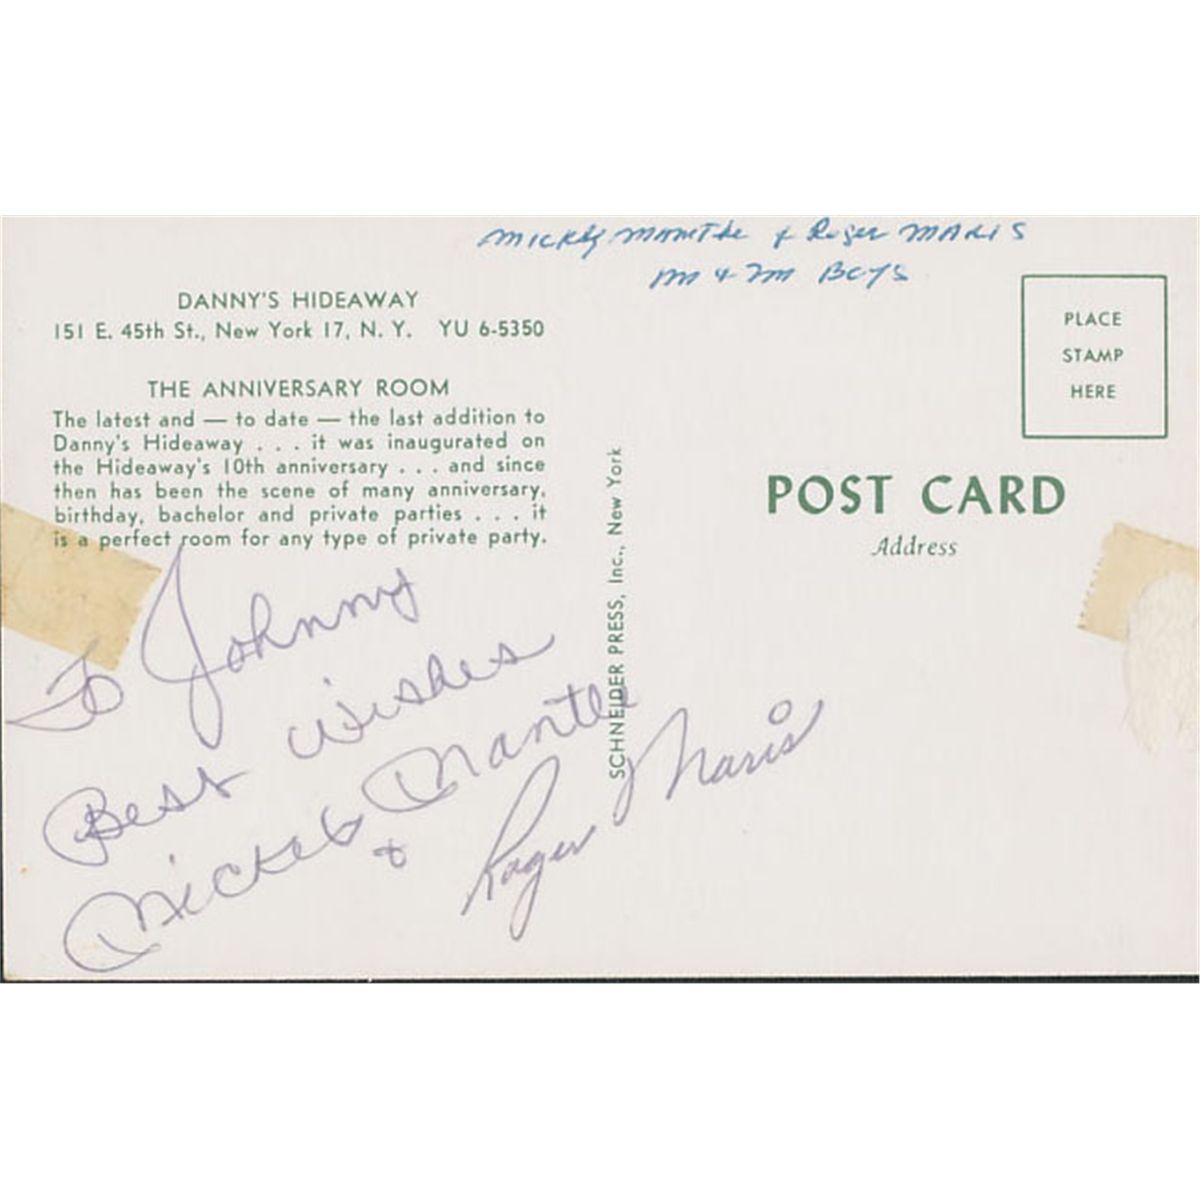 Mickey Mantle & Roger Maris
M & M Boys
DANNY'S HIDEAWAY
151 E. 45th St., New York 17, N. Y. YU 6-5350
THE ANNIVERSARY ROOM
The latest and — to date — the last addition to
Danny's Hideaway . . . it was inaugurated on
the Hideaway's 10th anniversary . . . and since
then has been the scene of many anniversary,
birthday, bachelor and private parties . . . it
is a perfect room for any type of private party.
To Johnny
Best Wishes
Mickey Mantle
&
Roger Maris
SCHNEIDER PRESS, Inc., New York
PLACE
STAMP
HERE
POST CARD
Address